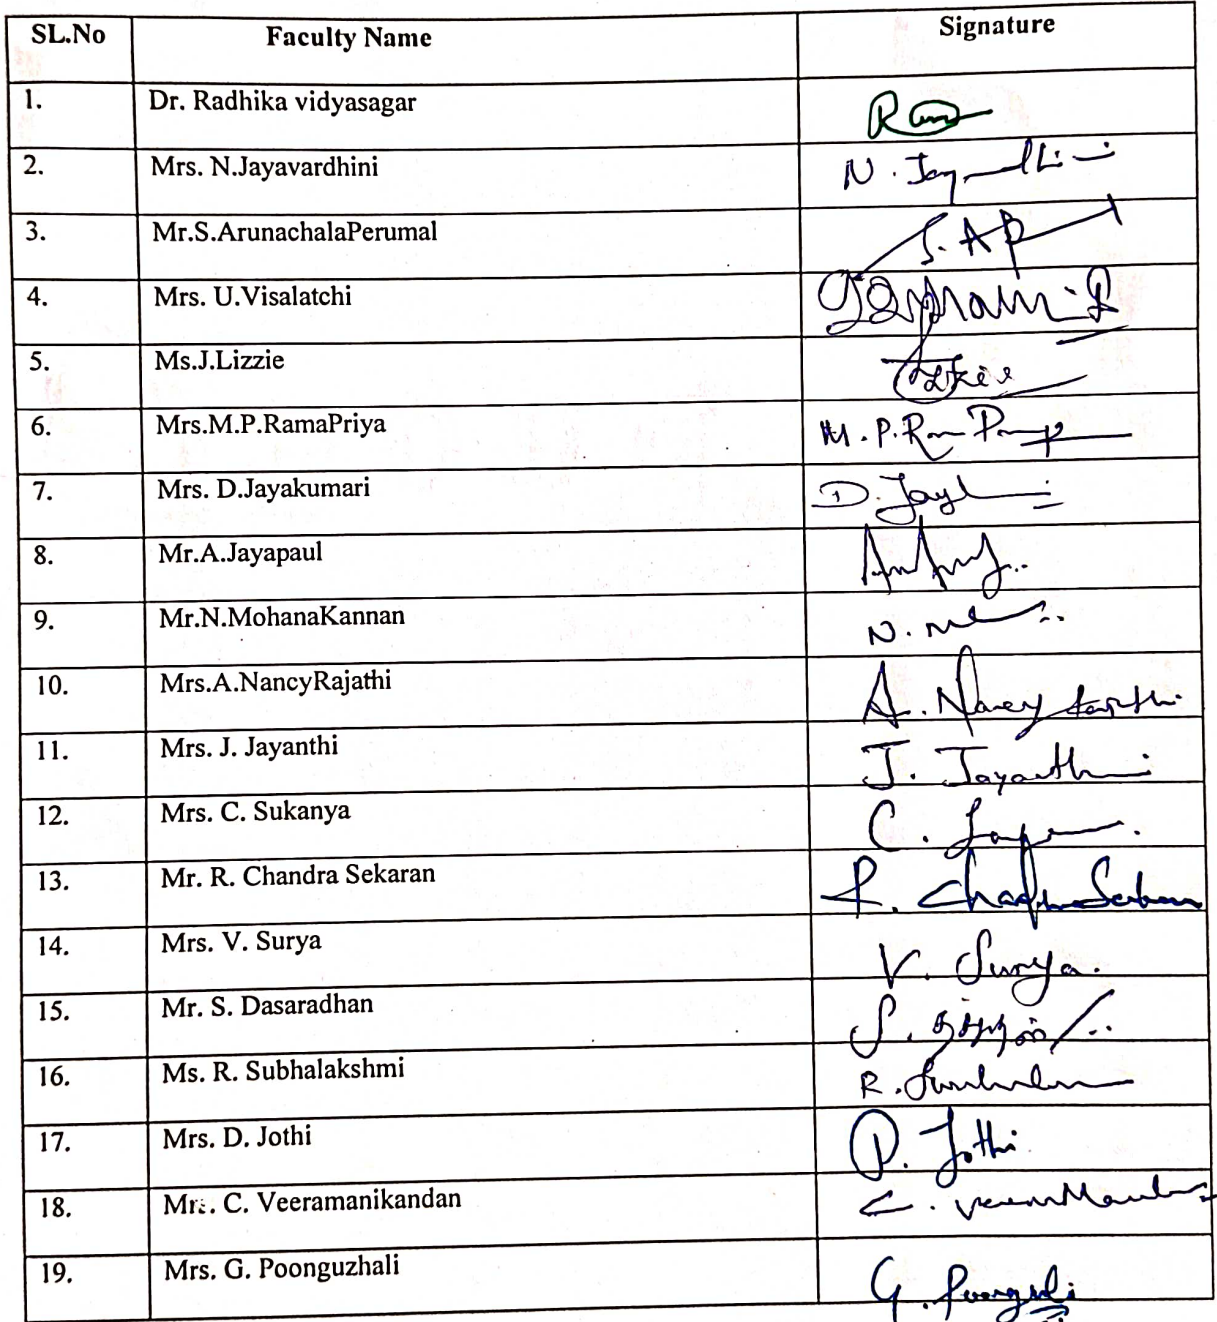 SL.No Faculty Name Signature
1. Dr. Radhika vidyasagar
2. Mrs. N.Jayavardhini N.
3. Mr.S.ArunachalaPerumal S. AP
4. Mrs. U.Visalatchi
5. Ms.J.Lizzie
6. Mrs.M.P.RamaPriya M. P.
7. Mrs. D.Jayakumari D.
8. Mr.A.Jayapaul
9. Mr.N.MohanaKannan N.
10. Mrs.A.NancyRajathi A. Nancy
11. Mrs. J. Jayanthi J. Jayanthi
12. Mrs. C. Sukanya C.
13. Mr. R. Chandra Sekaran R.
14. Mrs. V. Surya V. Surya.
15. Mr. S. Dasaradhan S.
16. Ms. R. Subhalakshmi R.
17. Mrs. D. Jothi D. Jothi
18. Mr. C. Veeramanikandan C.
19. Mrs. G. Poonguzhali G.